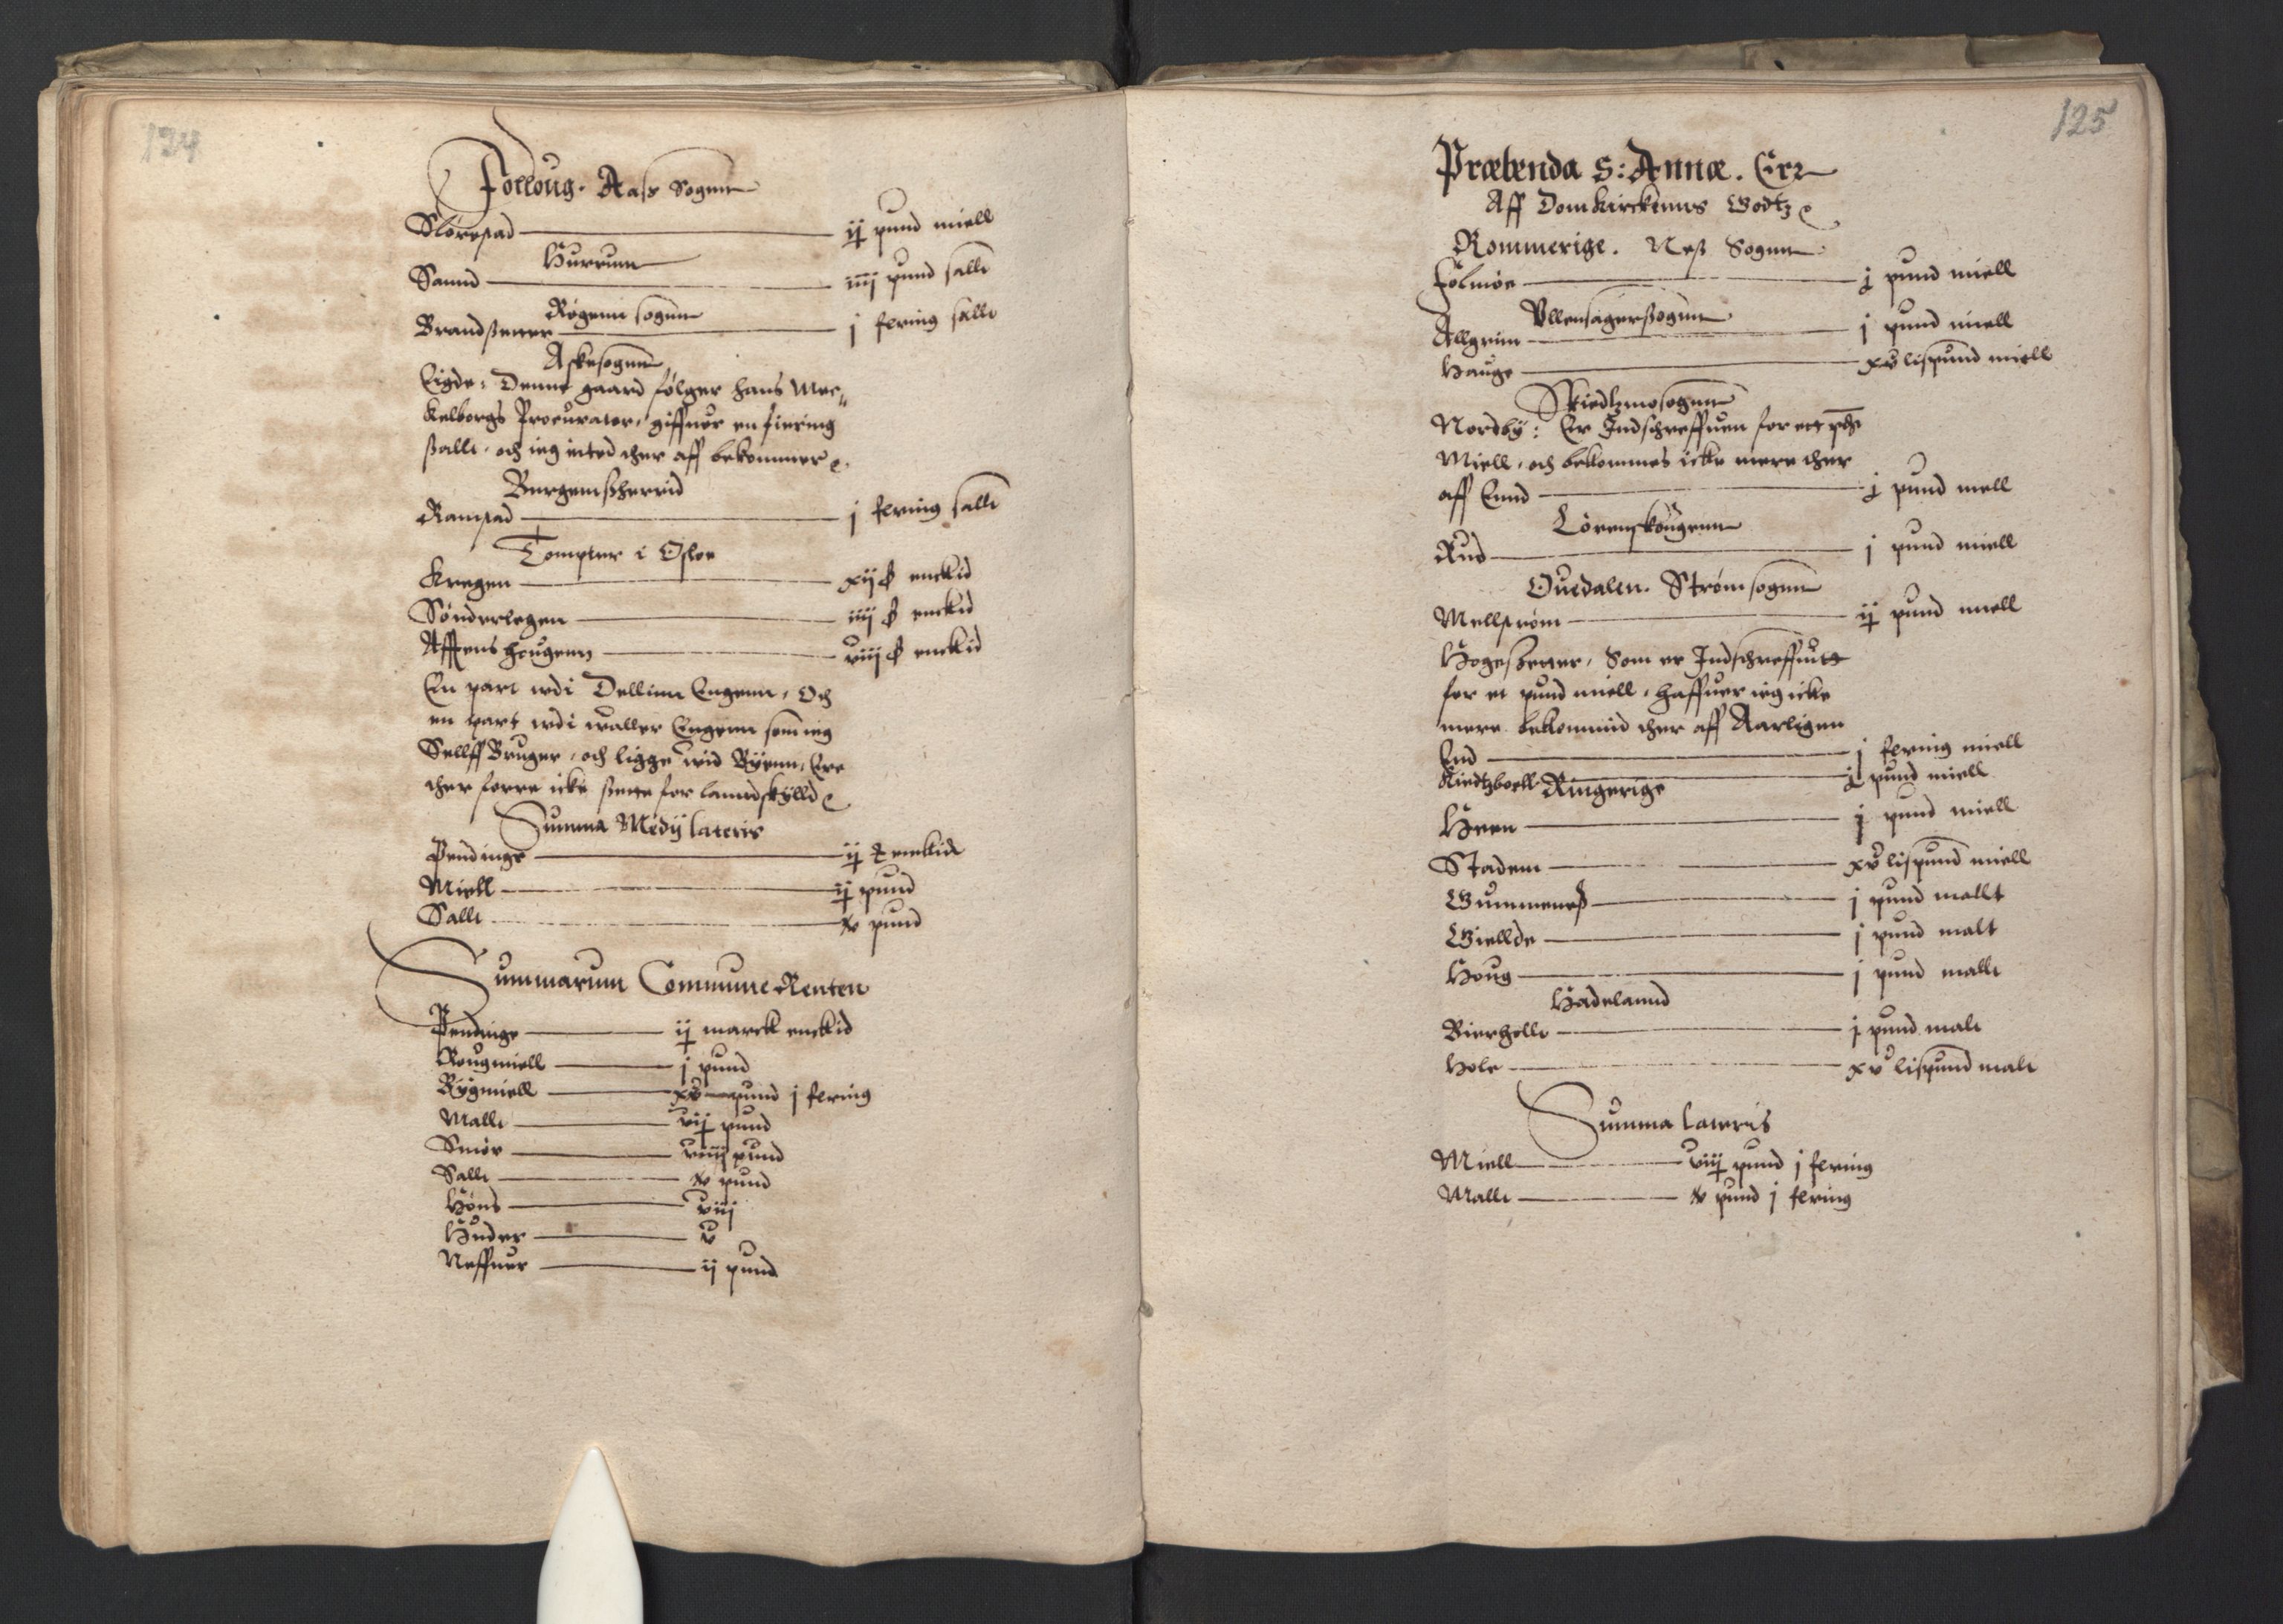 124
Folloug. Aass Sognn
Slørestad ij pund miell
Hurrum
Sannd iiij pund sallt
Røgenn sognn
Brandßetter j fering sallt
Askesognn
Eigde: Denne gaard følger hans Mec„
kelborgs Procurator, giffuer en fiering
ßallt, och ieg inted ther aff bekommer
Bergemßherrid
Ramstad j fering sallt
Tompter i Osloe
Kregen xij ß enckid
Sønderlegen iiij ß enckid
Afftens hougenn viij ß enckid
En part wdi Dellinn Engenn, Och
en part wdi waller Engenn som ieg
Sellff Bruger, och ligge wid Byenn, Ere
ther forre icke ßette for lanndskylld
Summa Medij lateris
Pendinge ij enckide
Miell ij pund
Sallt v pund
Summarum Commune Renten
Pendinge ij marck enckid
Rougmiell j pund
Bygmiell xv pund j fering
Mallt vij pund
Smør viij pund
Sallt v pund
Høns viij
Huder v
Neffuer ij pund
125
Præbenda S: Annæ. Err
Aff Domkirckenns Godtz
Rommerige. Neß Sognn
Folmoe j pund miell
Vllensagerßognn
Allgrim j pund miell
Hauge xv lispund miell
Skiedtzmosognn
Nordby: Er Indschreffuen for ett pd
Miell, och bekommes icke mere ther
aff Ennd j pund mell
Lørennskougenn
Rud j pund miell
Ouedalen. Strøm sognn
Mellstrøm ij pund miell
Hogeßetter, Som er Indschreffuitt
for et pund miell, haffuer ieg icke
mere bekommid ther aff Aarligen
End j fering miell
Kiedtzboell j pund miell
Ringerige
Hren j pund miell
Stadem xv lispund miell
Gummeneß j pund mallt
Giellde j pund malt
Houg j pund mallt
Hadelannd
Bierghellt j pund malt
Hole xv lispund malt
Summa lateris
Miell viij pund j fering
Mallt v pund j fering